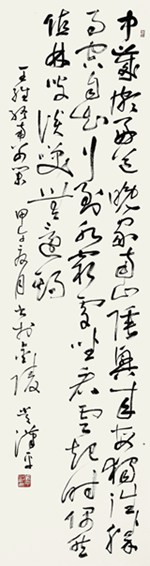 中歲頗好道晚家南山陲興來每獨往勝
事空自知行到水窮處坐看雲起時偶然
值林叟談笑無還期
王維終南別業 甲午夏月書於金陵 漢平